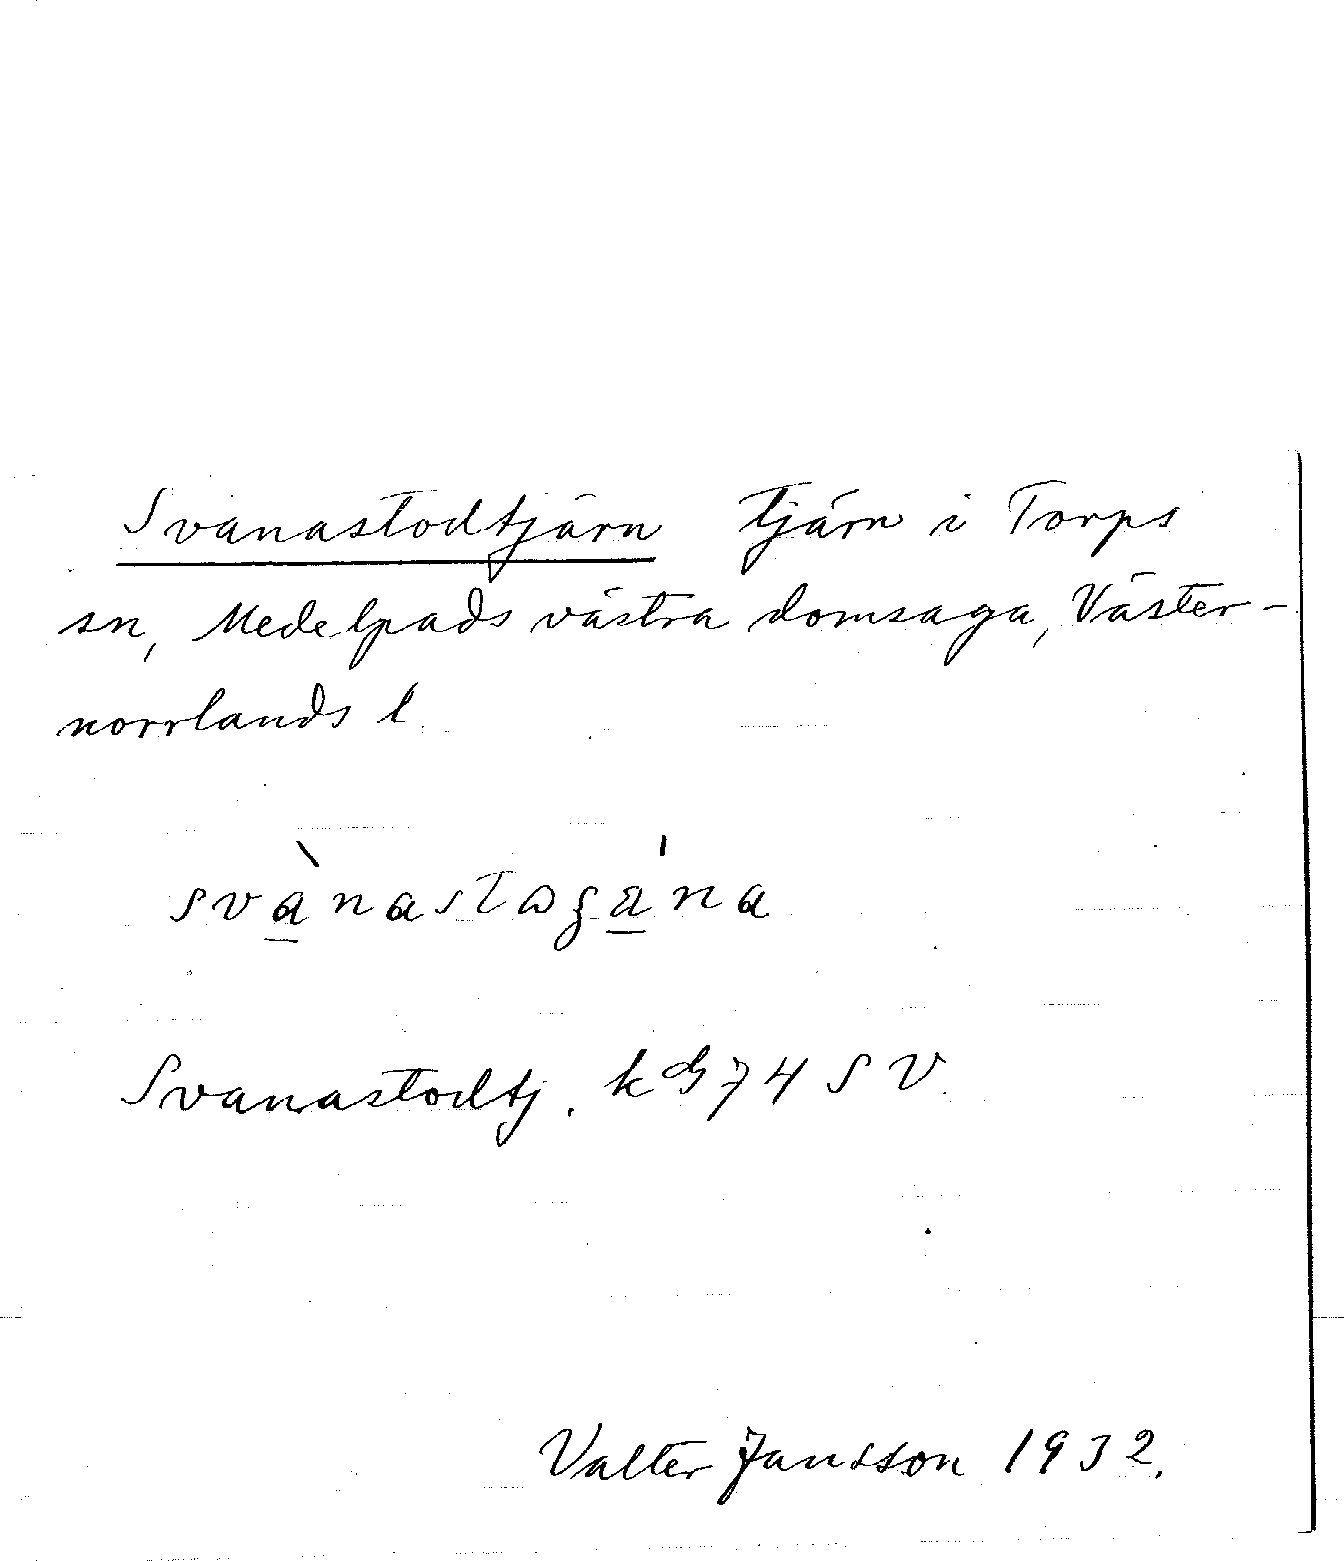 Svanastodtjärn tjärn i Torps
sn, Medelpads västra domsaga, Väster-
norrlands l.
Svanastodtj. k G 74 SV.
Valter Jansson 1932.